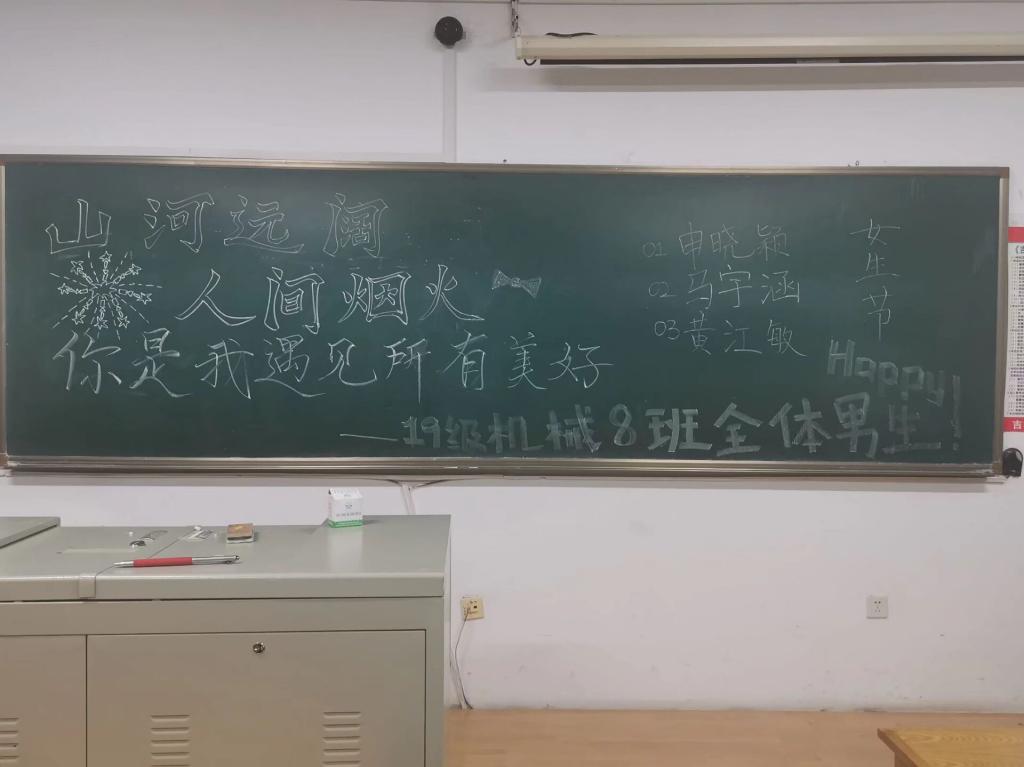 山河远阔
人间烟火
你是我遇见所有美好
01 申晓颖
02 马宇涵
03 黄江敏
女生节
Happy!
——19级机械8班全体男生